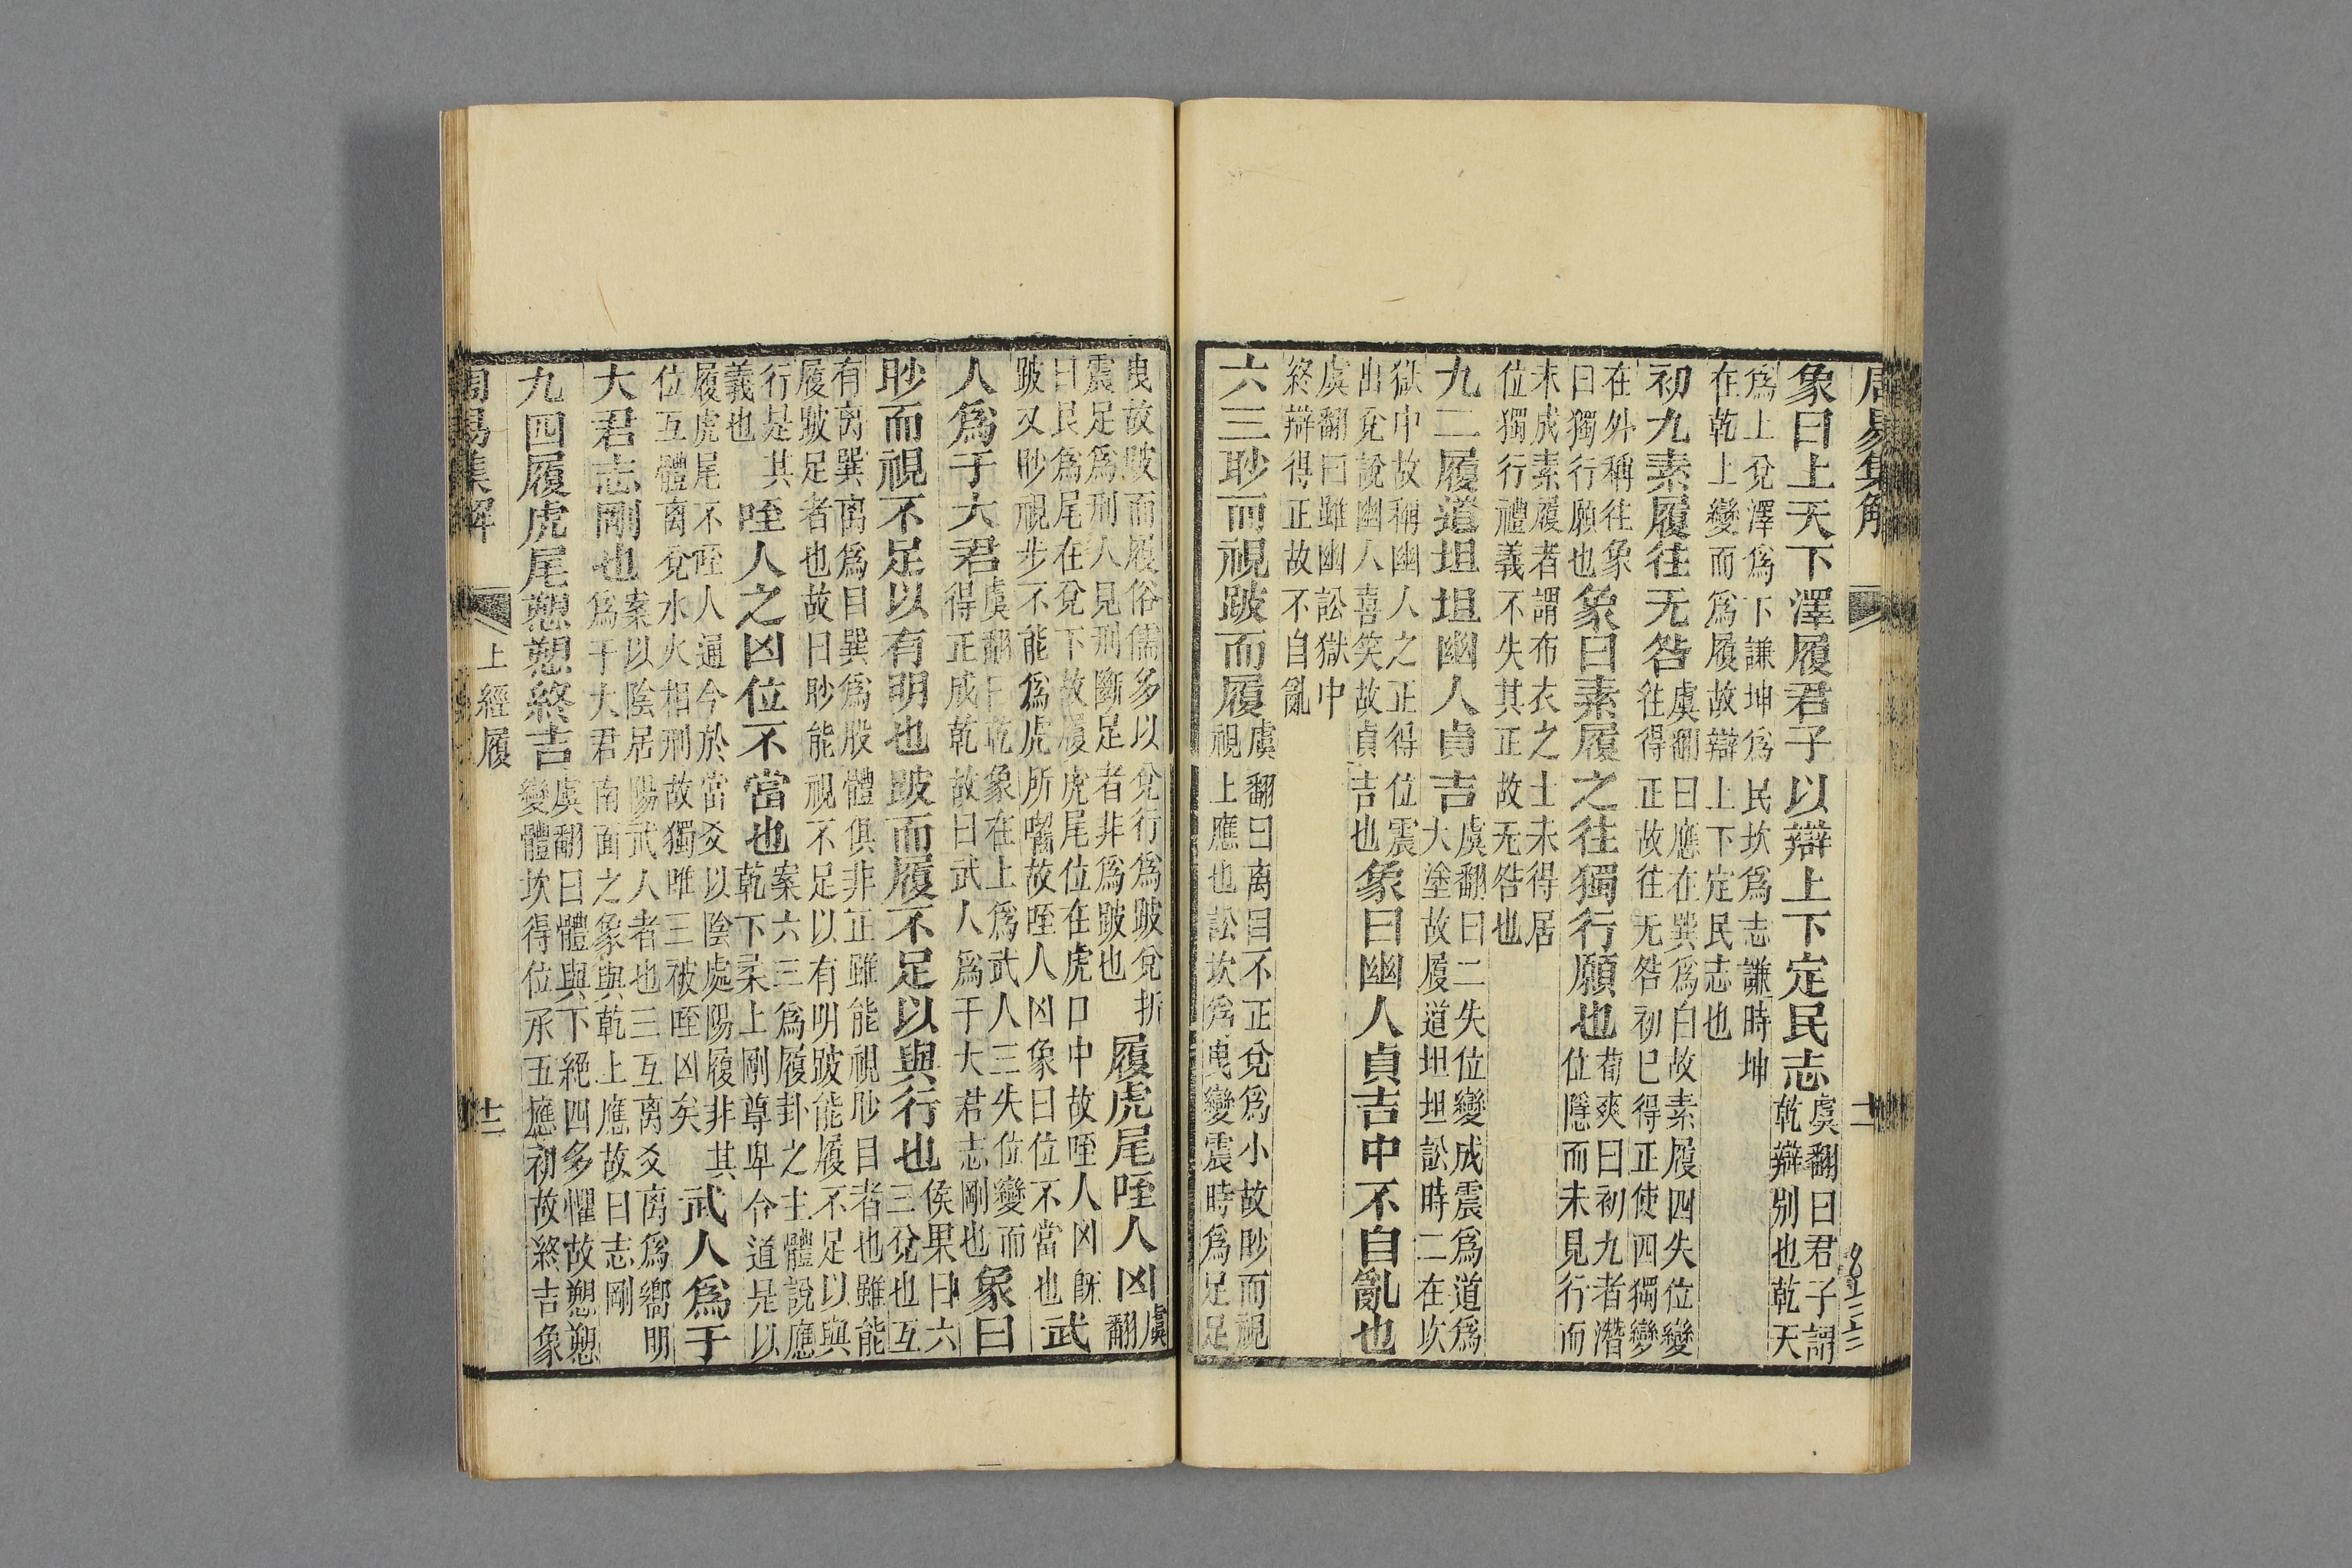 周易集解
十一
象曰上天下澤履君子以辯上下定民志虞翻曰君子謂
乾辯別也乾天
爲上兌澤爲下謙坤爲民坎爲志謙時坤
在乾上變而爲履故辯上下定民志也
初九素履往无咎虞翻曰應在巽爲白故素履四失位變
往得正故往无咎初巳得正使四獨變
在外稱往象
曰獨行願也象曰素履之往獨行願也荀爽曰初九者潛
位隱而未見行而
未成素履者謂布衣之士未得居
位獨行禮義不失其正故无咎也
九二履道坦坦幽人貞吉虞翻曰二失位變成震爲道爲
大塗故履道坦坦訟時二在坎
獄中故稱幽人之正得位震
出兌說幽人喜笑故貞吉也象曰幽人貞吉中不自亂也
虞翻曰雖幽訟獄中
終辯得正故不自亂
六三眇而視跛而履虞翻曰离目不正兌爲小故眇而視
視上應也訟坎爲曳變震時爲足足
曳故跛而履俗儒多以兌行爲跛兌折
震足爲刑人見刑斷足者非爲跛也履虎尾咥人凶虞
翻
曰艮爲尾在兌下故履虎尾位在虎口中故咥人凶旣
跛又眇視步不能爲虎所囓故咥人凶象曰位不當也武
人爲于大君虞翻曰乾象在上爲武人三失位變而
得正成乾故曰武人爲于大君志剛也象曰
眇而視不足以有明也跛而履不足以與行也侯果曰六
三兌也互
有离巽离爲目巽爲股體俱非正雖能視眇目者也雖能
履跛足者也故曰眇能視不足以有明跛能履不足以與
行是其
義也咥人之凶位不當也案六三爲履卦之主體說應
乾下柔上剛尊卑合道是以
履虎尾不咥人通今於當爻以陰處陽履非其
位互體离兌水火相刑故獨唯三被咥凶矣武人爲于
大君志剛也案以陰居陽武人者也三互离爻离爲嚮明
爲于大君南面之象與乾上應故曰志剛
九四履虎尾愬愬終吉虞翻曰體與下絕四多懼故愬愬
變體坎得位承五應初故終吉象
周易集解
上經履
十二